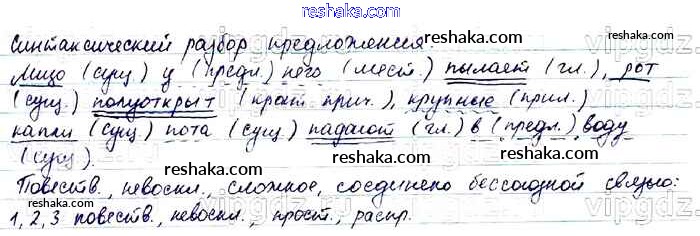 reshaka.ru
Синтаксический разбор предложения:
Лицо (сущ.) у (предл.) него (мест.) пылает (гл.), рот
(сущ.) полуоткрыт (крат. прич.), крупные (прил.)
капли (сущ) пота (сущ) падают (гл.) в (предл.) воду
(сущ).
Повеств., невоскл., сложное, соединено бессоюзной связью:
1, 2, 3 повеств., невоскл., прост., распр.